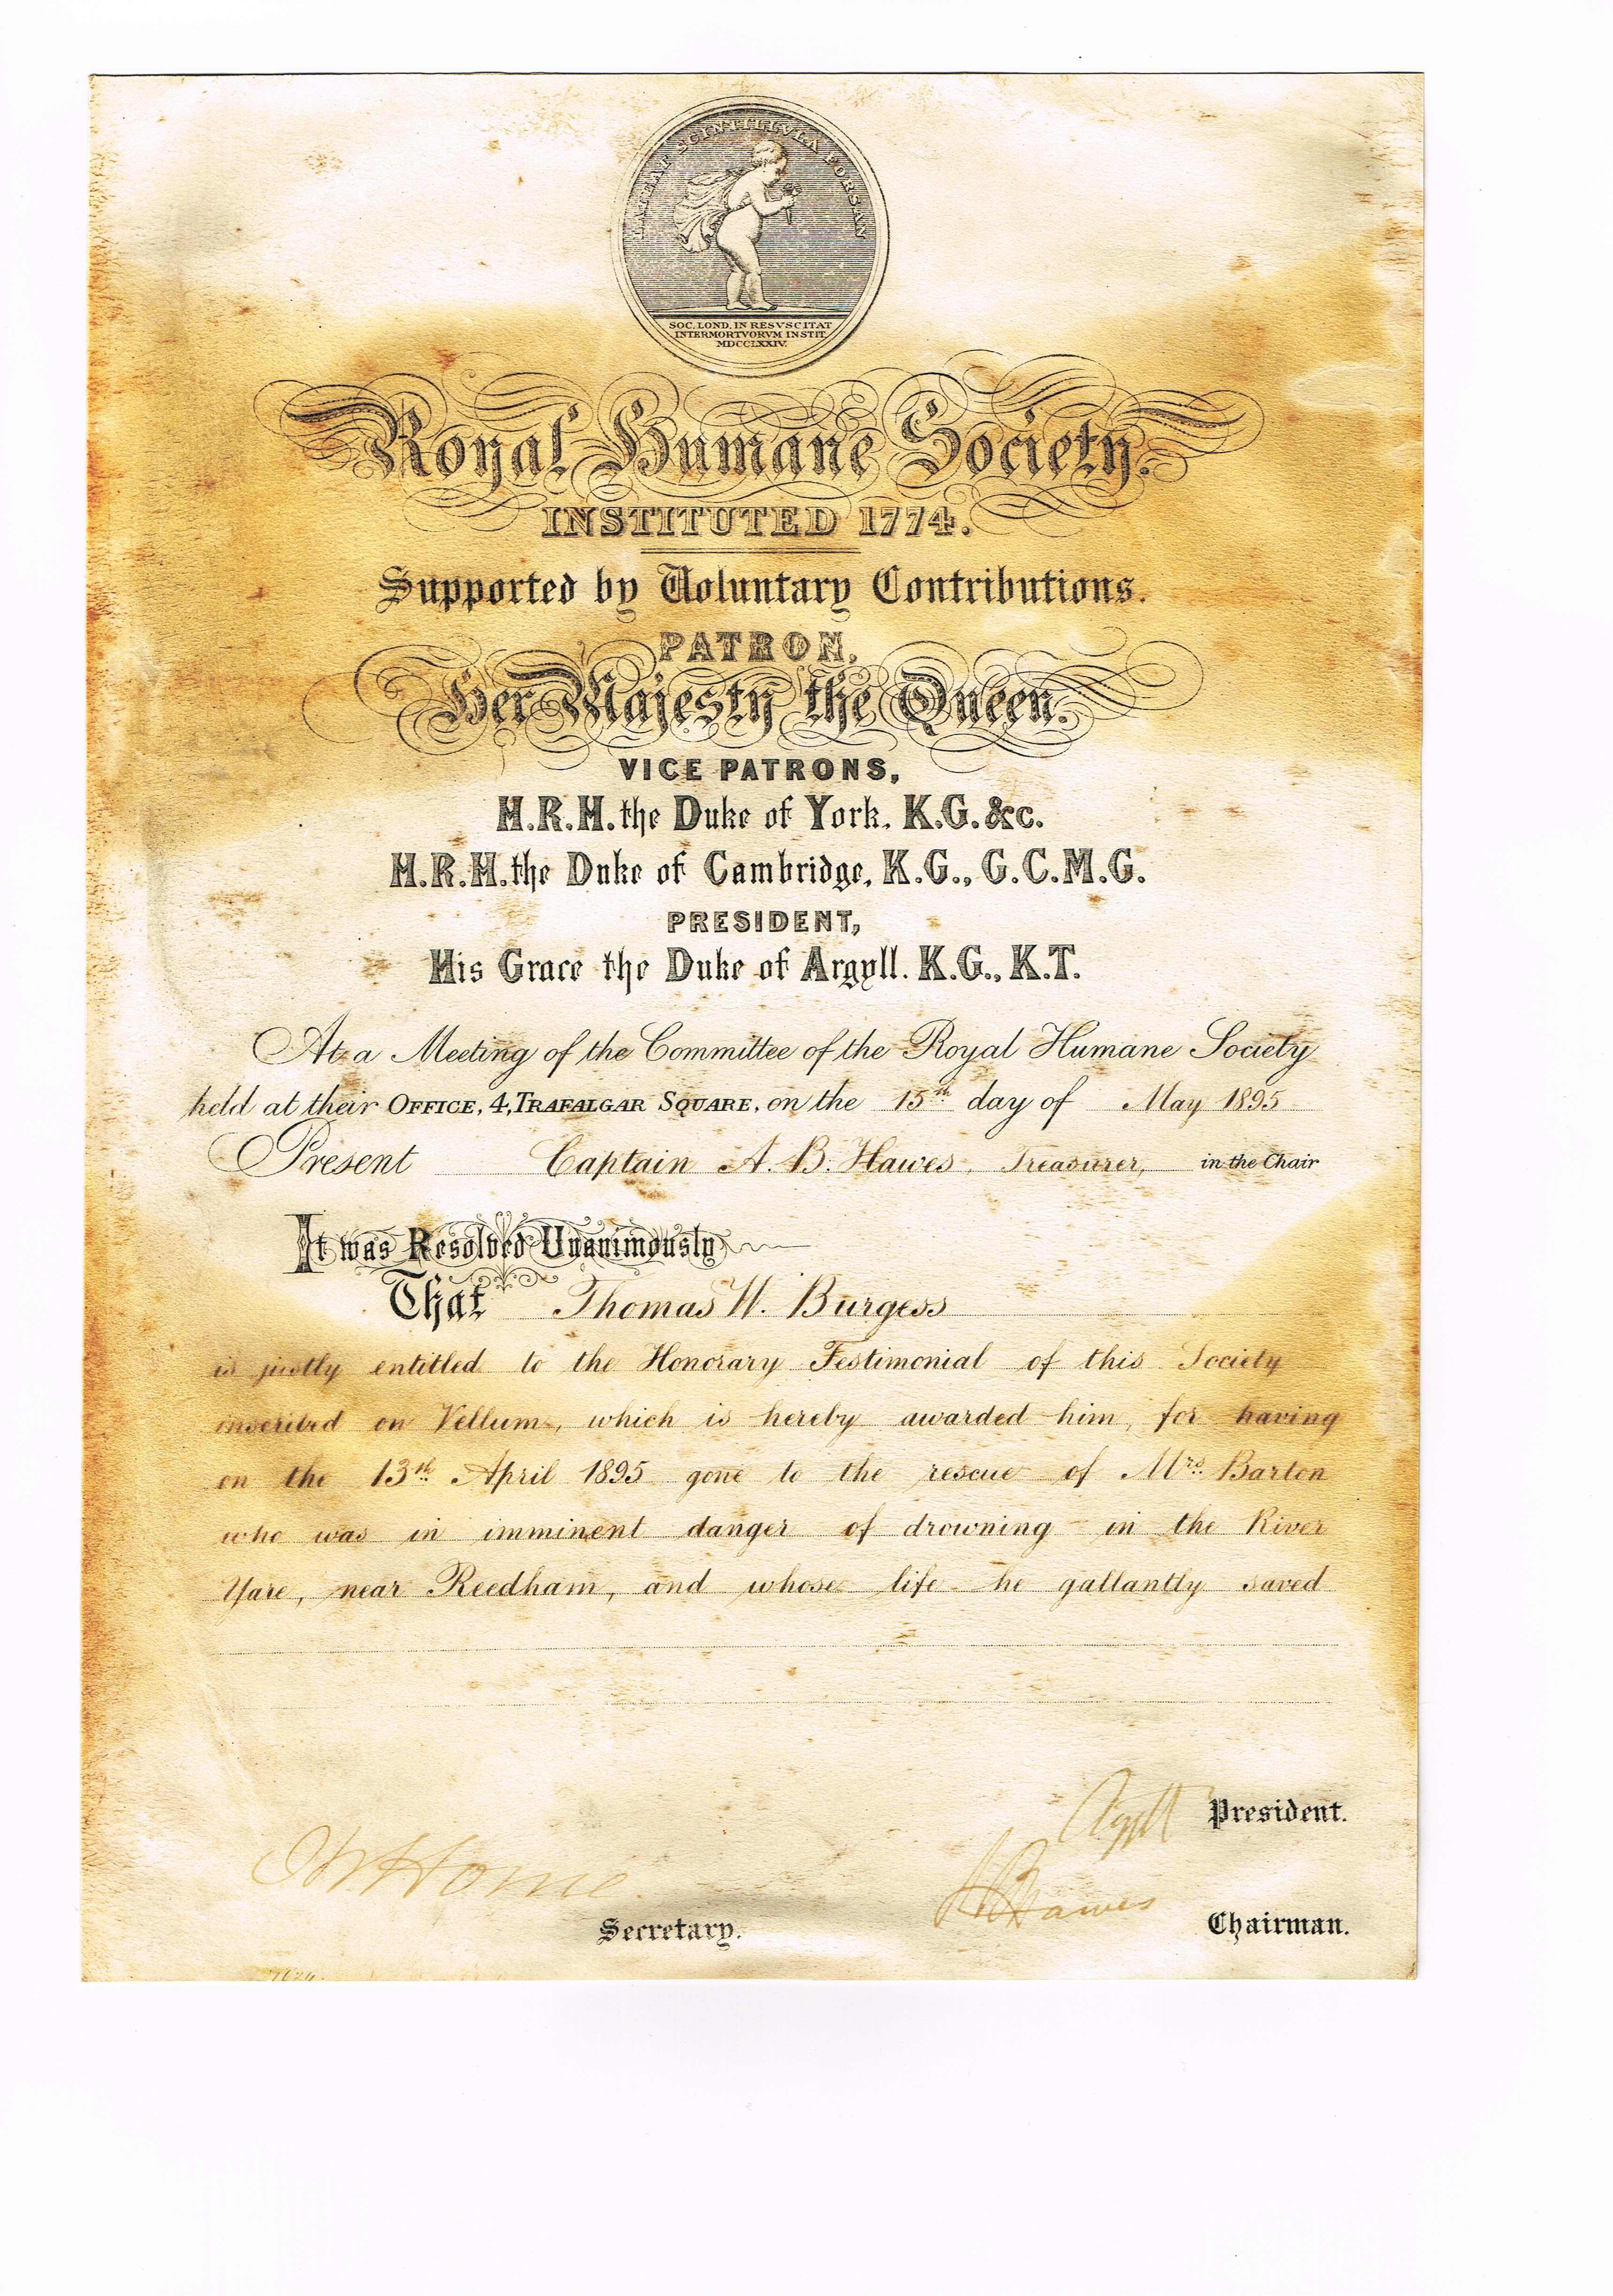 LATEAT SCINTILLVLA FORSAN
SOC. LOND. IN RESVSCITAT
INTERMORTVORVM INSTIT.
MDCCLXXIV.
Royal Humane Society.
INSTITUTED 1774.
Supported by Voluntary Contributions.
PATRON,
Her Majesty the Queen.
VICE PATRONS,
H.R.H. the Duke of York. K.G. &c.
H.R.H. the Duke of Cambridge, K.G., G.C.M.G.
PRESIDENT,
His Grace the Duke of Argyll. K.G., K.T.
At a Meeting of the Committee of the Royal Humane Society
held at their OFFICE, 4, TRAFALGAR SQUARE, on the 15th day of May 1895
Present Captain A. B. Hawes, Treasurer, in the Chair
It was Resolved Unanimously
That Thomas W. Burgess
is justly entitled to the Honorary Testimonial of this Society
inscribed on Vellum, which is hereby awarded him, for having
on the 13th April 1895 gone to the rescue of Mrs. Barton
who was in imminent danger of drowning in the River
Yare, near Reedham, and whose life he gallantly saved
Argyll President.
Home
Secretary.
A B Hawes Chairman.